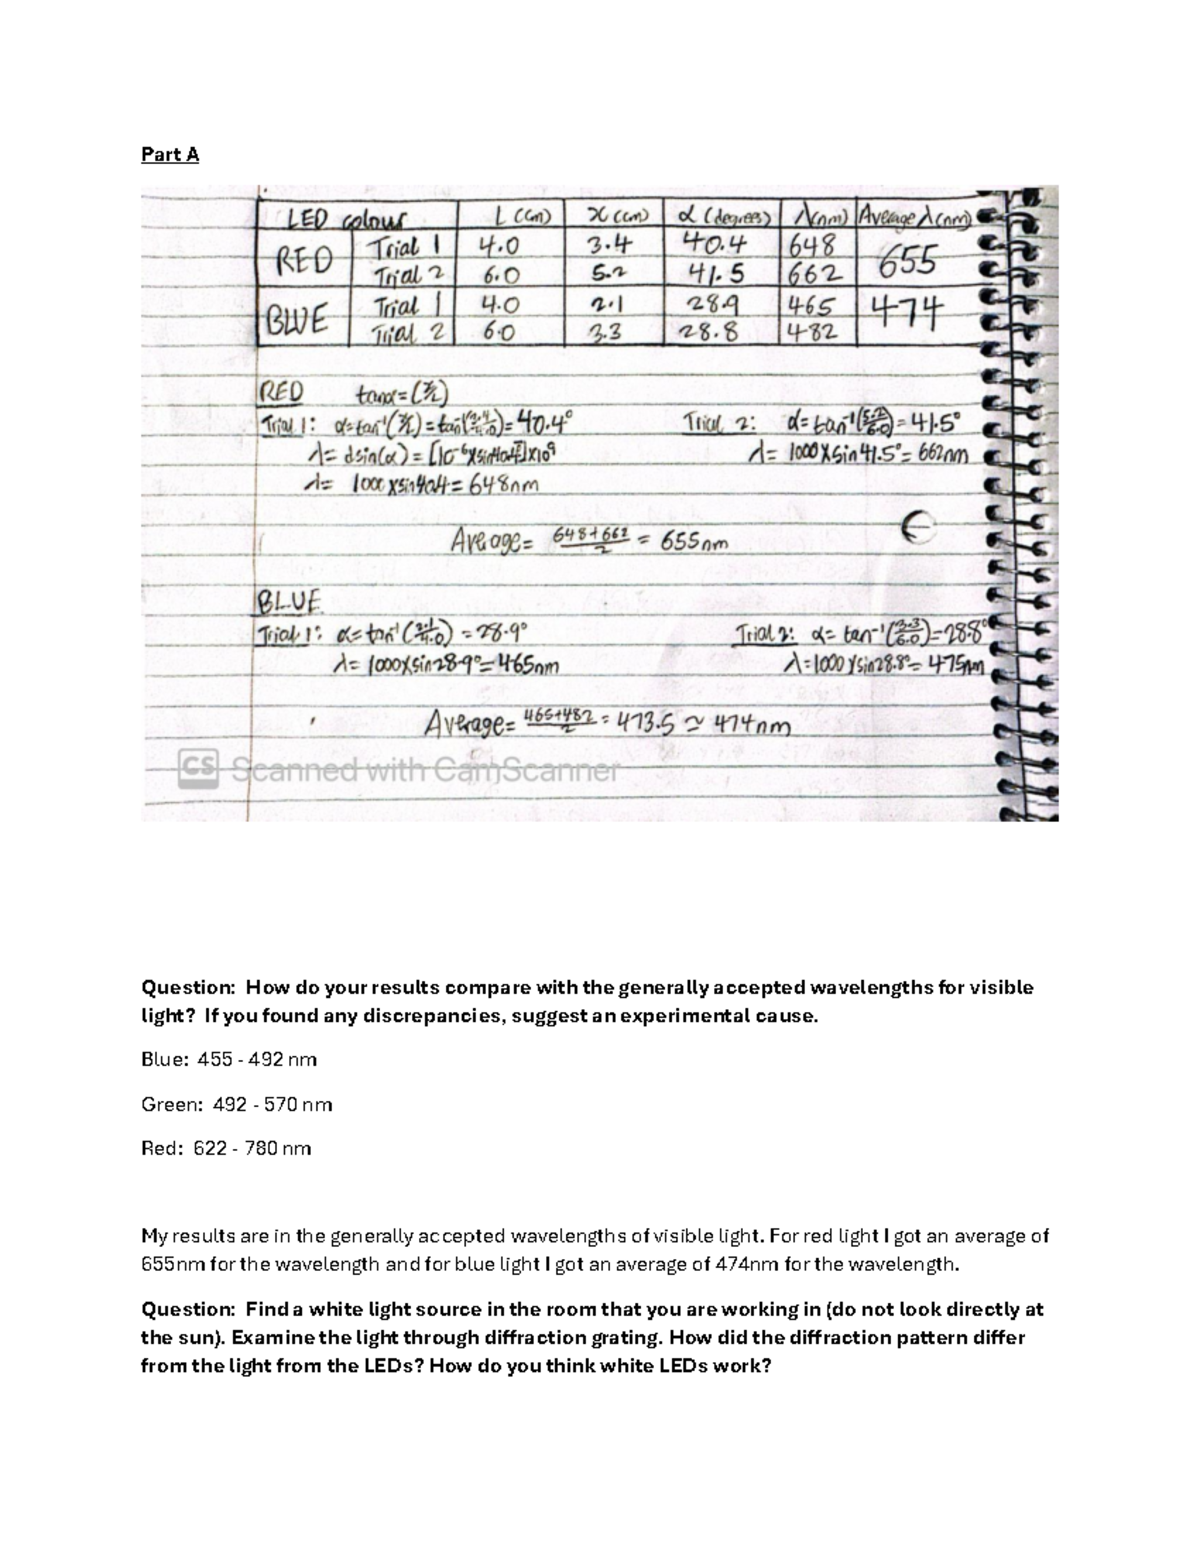 Part A
LED colour L (cm) x (cm) α (degrees) λ(nm) Average λ(nm)
RED Trial 1 4.0 3.4 40.4 648 655
Trial 2 6.0 5.2 41.5 662
BLUE Trial 1 4.0 2.1 28.9 465 474
Trial 2 6.0 3.3 28.8 482
RED tanα=(x/L)
Trial 1: α=tan⁻¹(x/L)=tan⁻¹(3.4/4.0)=40.4° Trial 2: α=tan⁻¹(5.2/6.0)=41.5°
λ= dsin(α) = [10⁻⁶xsin40.4]x10⁹ λ= 1000xsin41.5°= 662nm
λ= 1000xsin40.4= 648nm
Average= 648+662/2 = 655nm
BLUE
Trial 1: α=tan⁻¹(2.1/4.0) =28.9° Trial 2: α= tan⁻¹(3.3/6.0)=28.8°
λ= 1000xsin28.9°=465nm λ=1000xsin28.8°= 475nm
Average= 465+482/2 = 473.5 ≃ 474nm
CS Scanned with CamScanner
Question: How do your results compare with the generally accepted wavelengths for visible
light? If you found any discrepancies, suggest an experimental cause.
Blue: 455 - 492 nm
Green: 492 - 570 nm
Red: 622 - 780 nm
My results are in the generally accepted wavelengths of visible light. For red light I got an average of
655nm for the wavelength and for blue light I got an average of 474nm for the wavelength.
Question: Find a white light source in the room that you are working in (do not look directly at
the sun). Examine the light through diffraction grating. How did the diffraction pattern differ
from the light from the LEDs? How do you think white LEDs work?